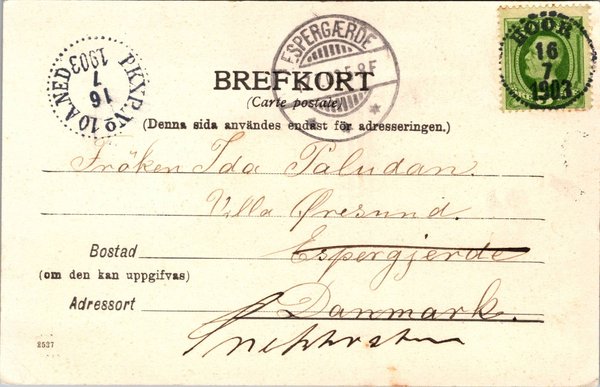 PKXP. No 10 A. NED
16
7
1903
ESPERGÆRDE
HÖÖR
16
7
1903
BREFKORT
(Carte postale)
(Denna sida användes endast för adresseringen.)
Fröken Ida Paludan.
Villa Øresund.
Bostad Espergjerde
(om den kan uppgifvas)
Adressort Danmark.
2527